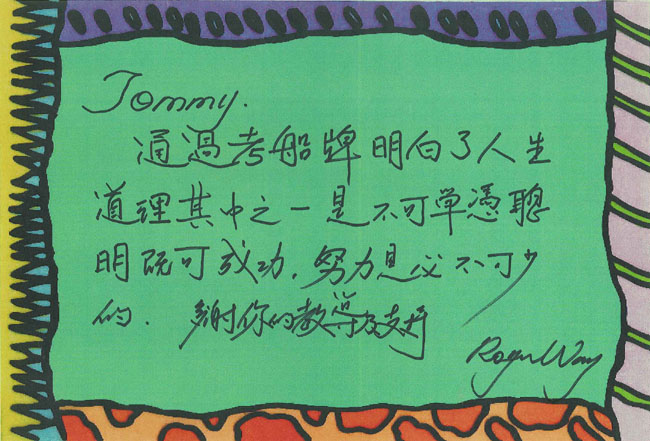 Tommy.
通過考船牌明白了人生
道理其中之一是不可单憑聰
明既可成功．努力是必不可少
的．多謝你的教导及支持
Roger Wong